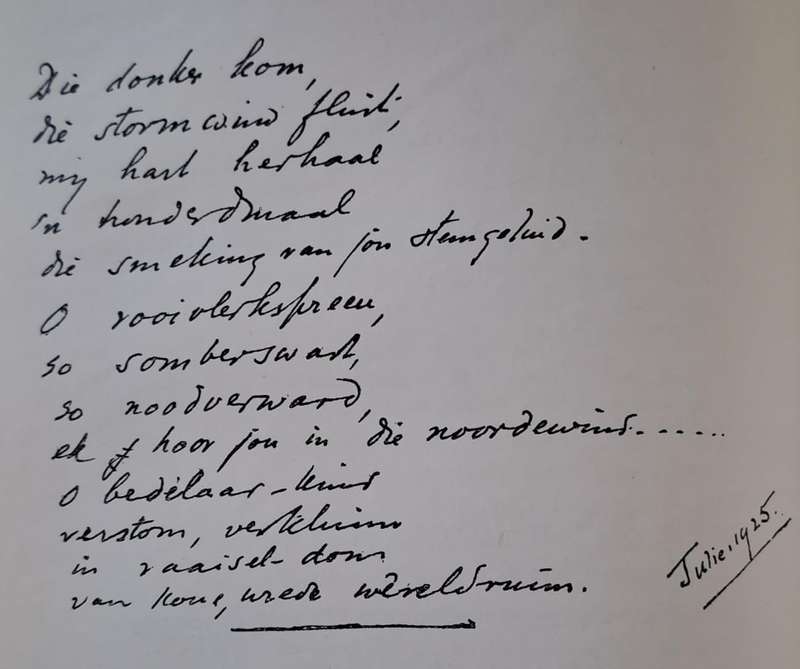 Die donker kom,
die stormwind fluit,
my hart herhaal
'n honderdmaal
die smeking van jou stemgeluid.
O rooivlerkspreeu,
so somberswart,
so noodverward,
ek hoor jou in die noordewind......
O bedelaar-kind
verstom, verkluim
in raaisel-dom
van koue, wrede wêreldruim.
Julie. 1925.